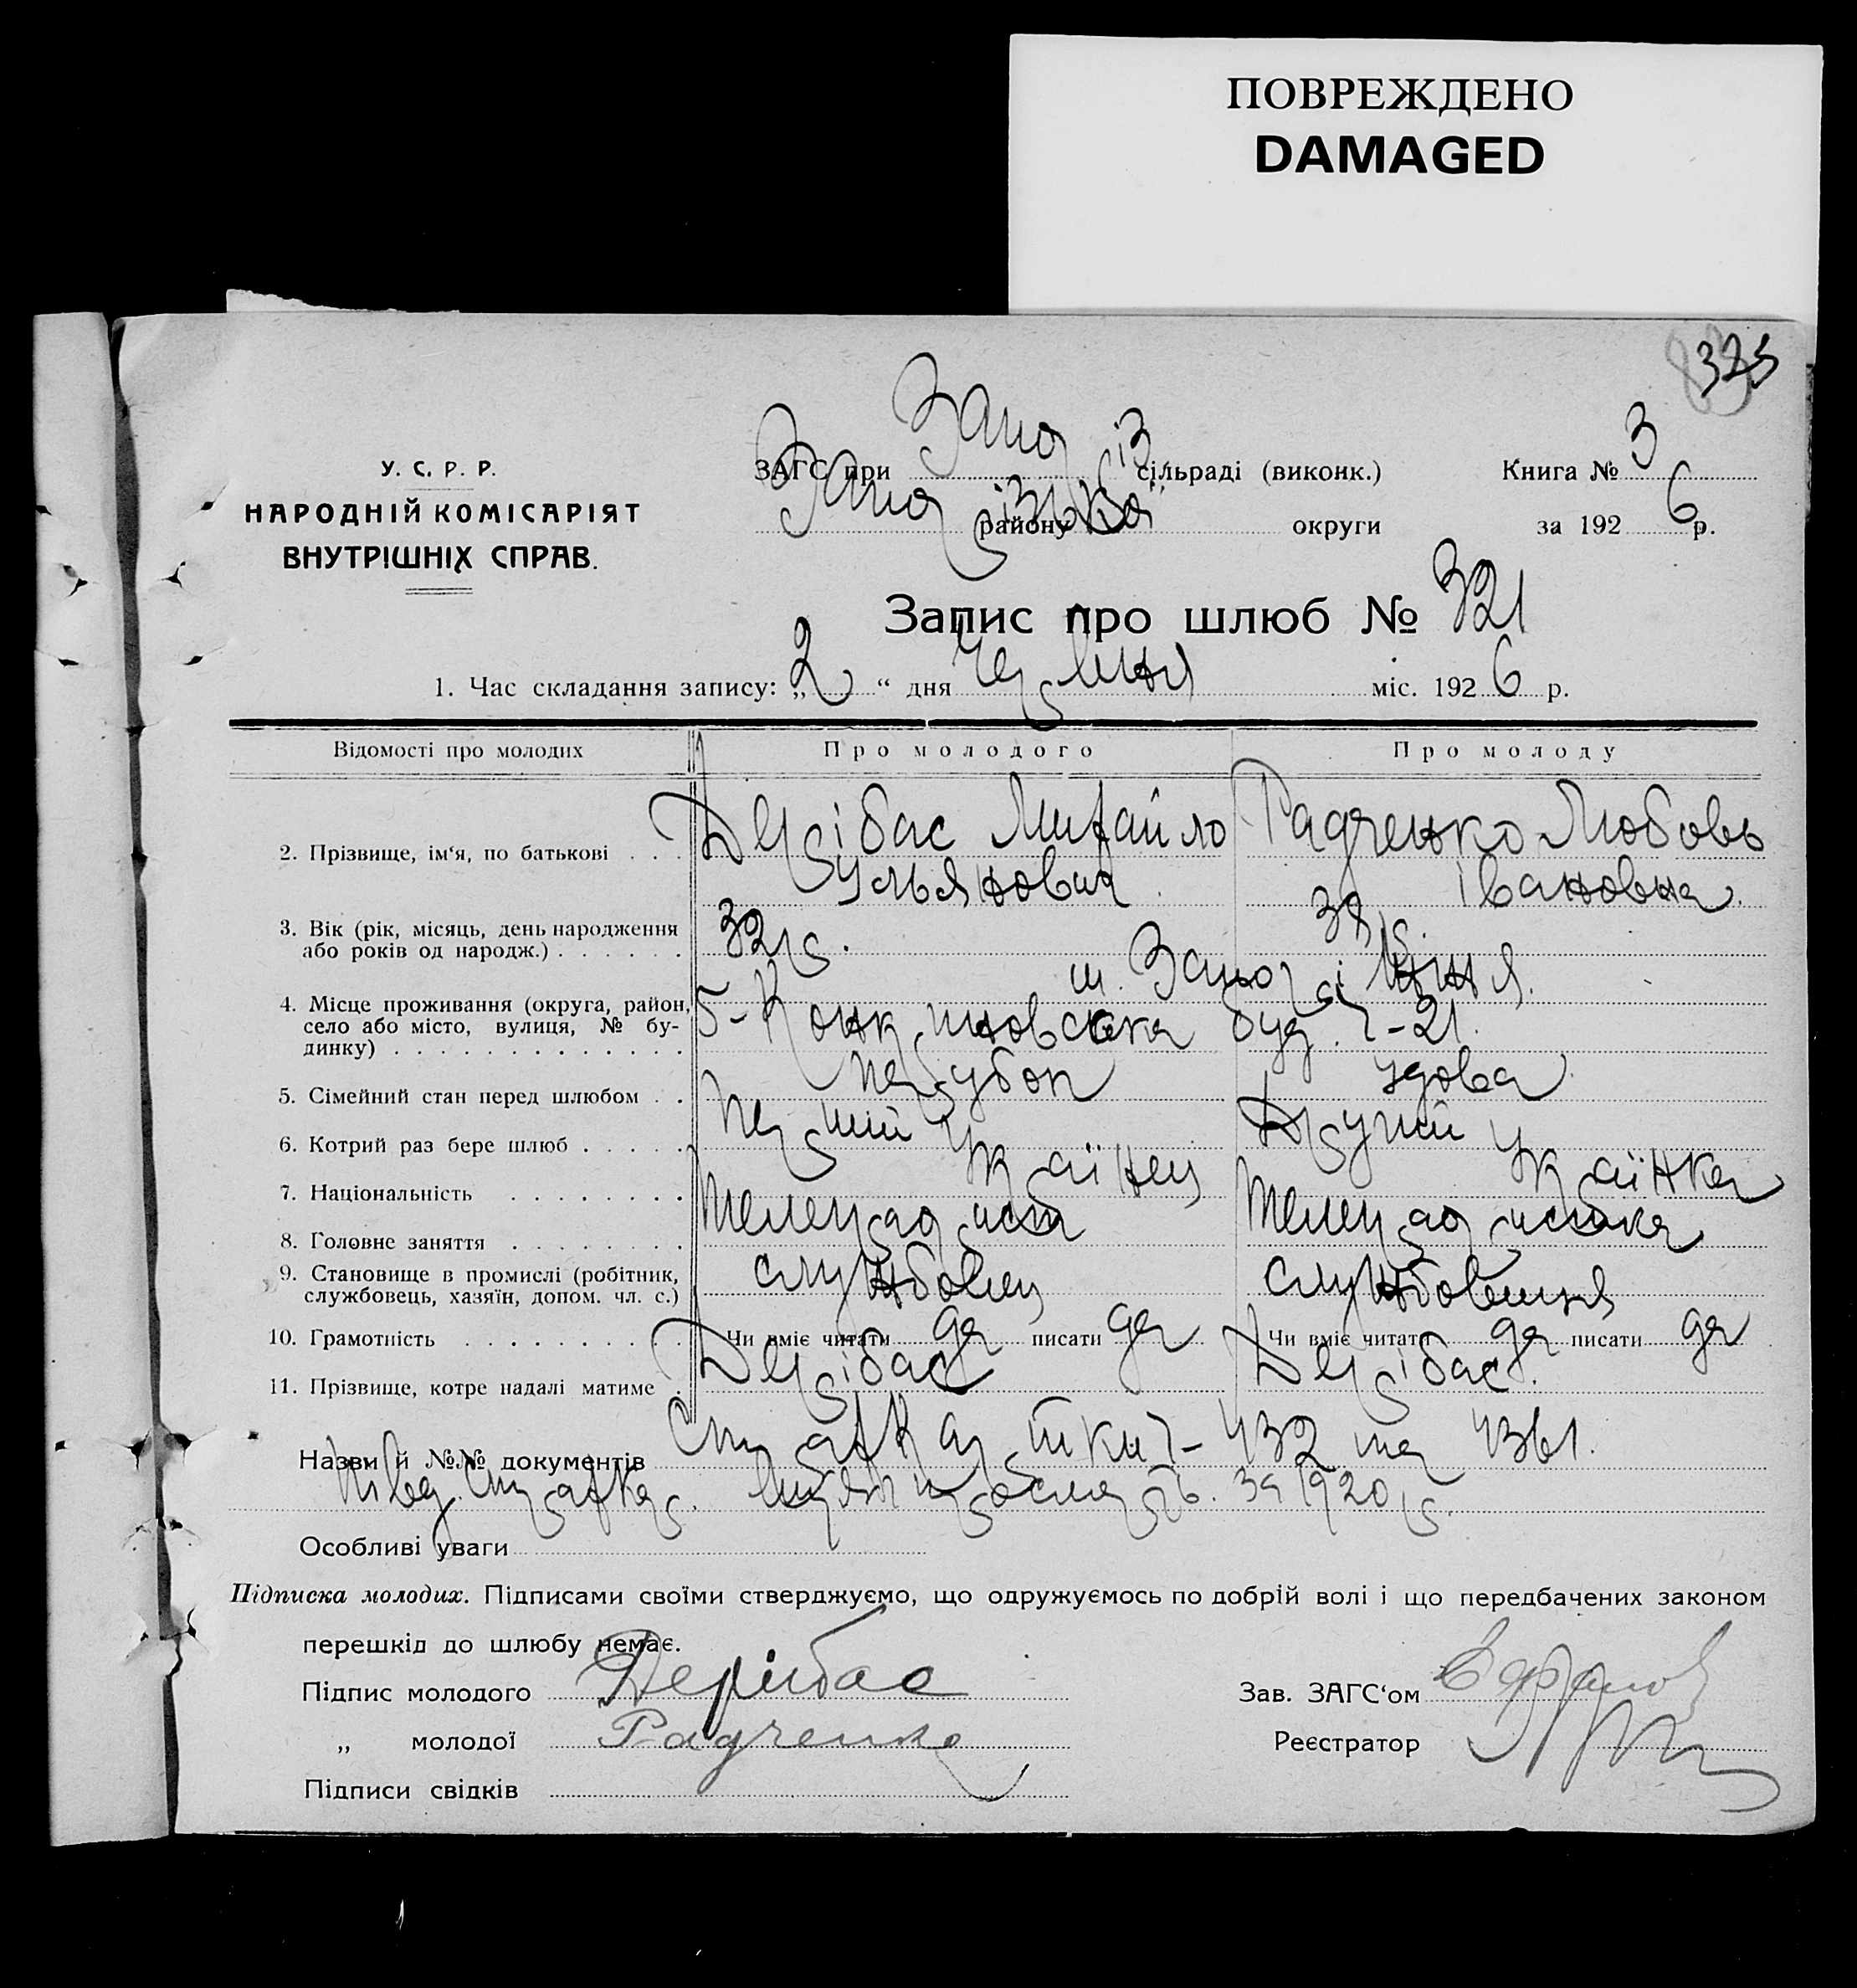 ПОВРЕЖДЕНО
DAMAGED
323
У. С. Р. Р.
НАРОДНІЙ КОМІСАРІЯТ
ВНУТРІШНІХ СПРАВ.
ЗАГС при сільраді (виконк.) Книга № 3
району округи за 1926 р.
Запис про шлюб № 321
1. Час складання запису: „2“ дня Червня міс. 1926 р.
Відомості про молодих Про молодого Про молоду
2. Прізвище, ім‘я, по батькові Дерібас Михайло Ульянович Радченко Любовь Івановна
3. Вік (рік, місяць, день народження або років од народж.) 32 р.
4. Місце проживання (округа, район, село або місто, вулиця, № будинку) м. Запоріжжя. буд. ч-21.
5. Сімейний стан перед шлюбом парубок удова
6. Котрий раз бере шлюб перший Другий
7. Національність Українец Українка
8. Головне заняття телеграфист телеграфистка
9. Становище в промислі (робітник, службовець, хазяїн, допом. чл. с.) службовец службовиця
10. Грамотність Чи вміє читати да писати да Чи вміє читати да писати да
11. Прізвище, котре надалі матиме Дерібас Дерібас.
Назви й №№ документів страх картки ч- 432 та 4361.
за 1920 р.
Особливі уваги
Підписка молодих. Підписами своїми стверджуємо, що одружуємось по добрій волі і що передбачених законом
перешкід до шлюбу немає.
Підпис молодого Дерибас Зав. ЗАГС‘ом
„ молодої Радченко Реєстратор
Підписи свідків